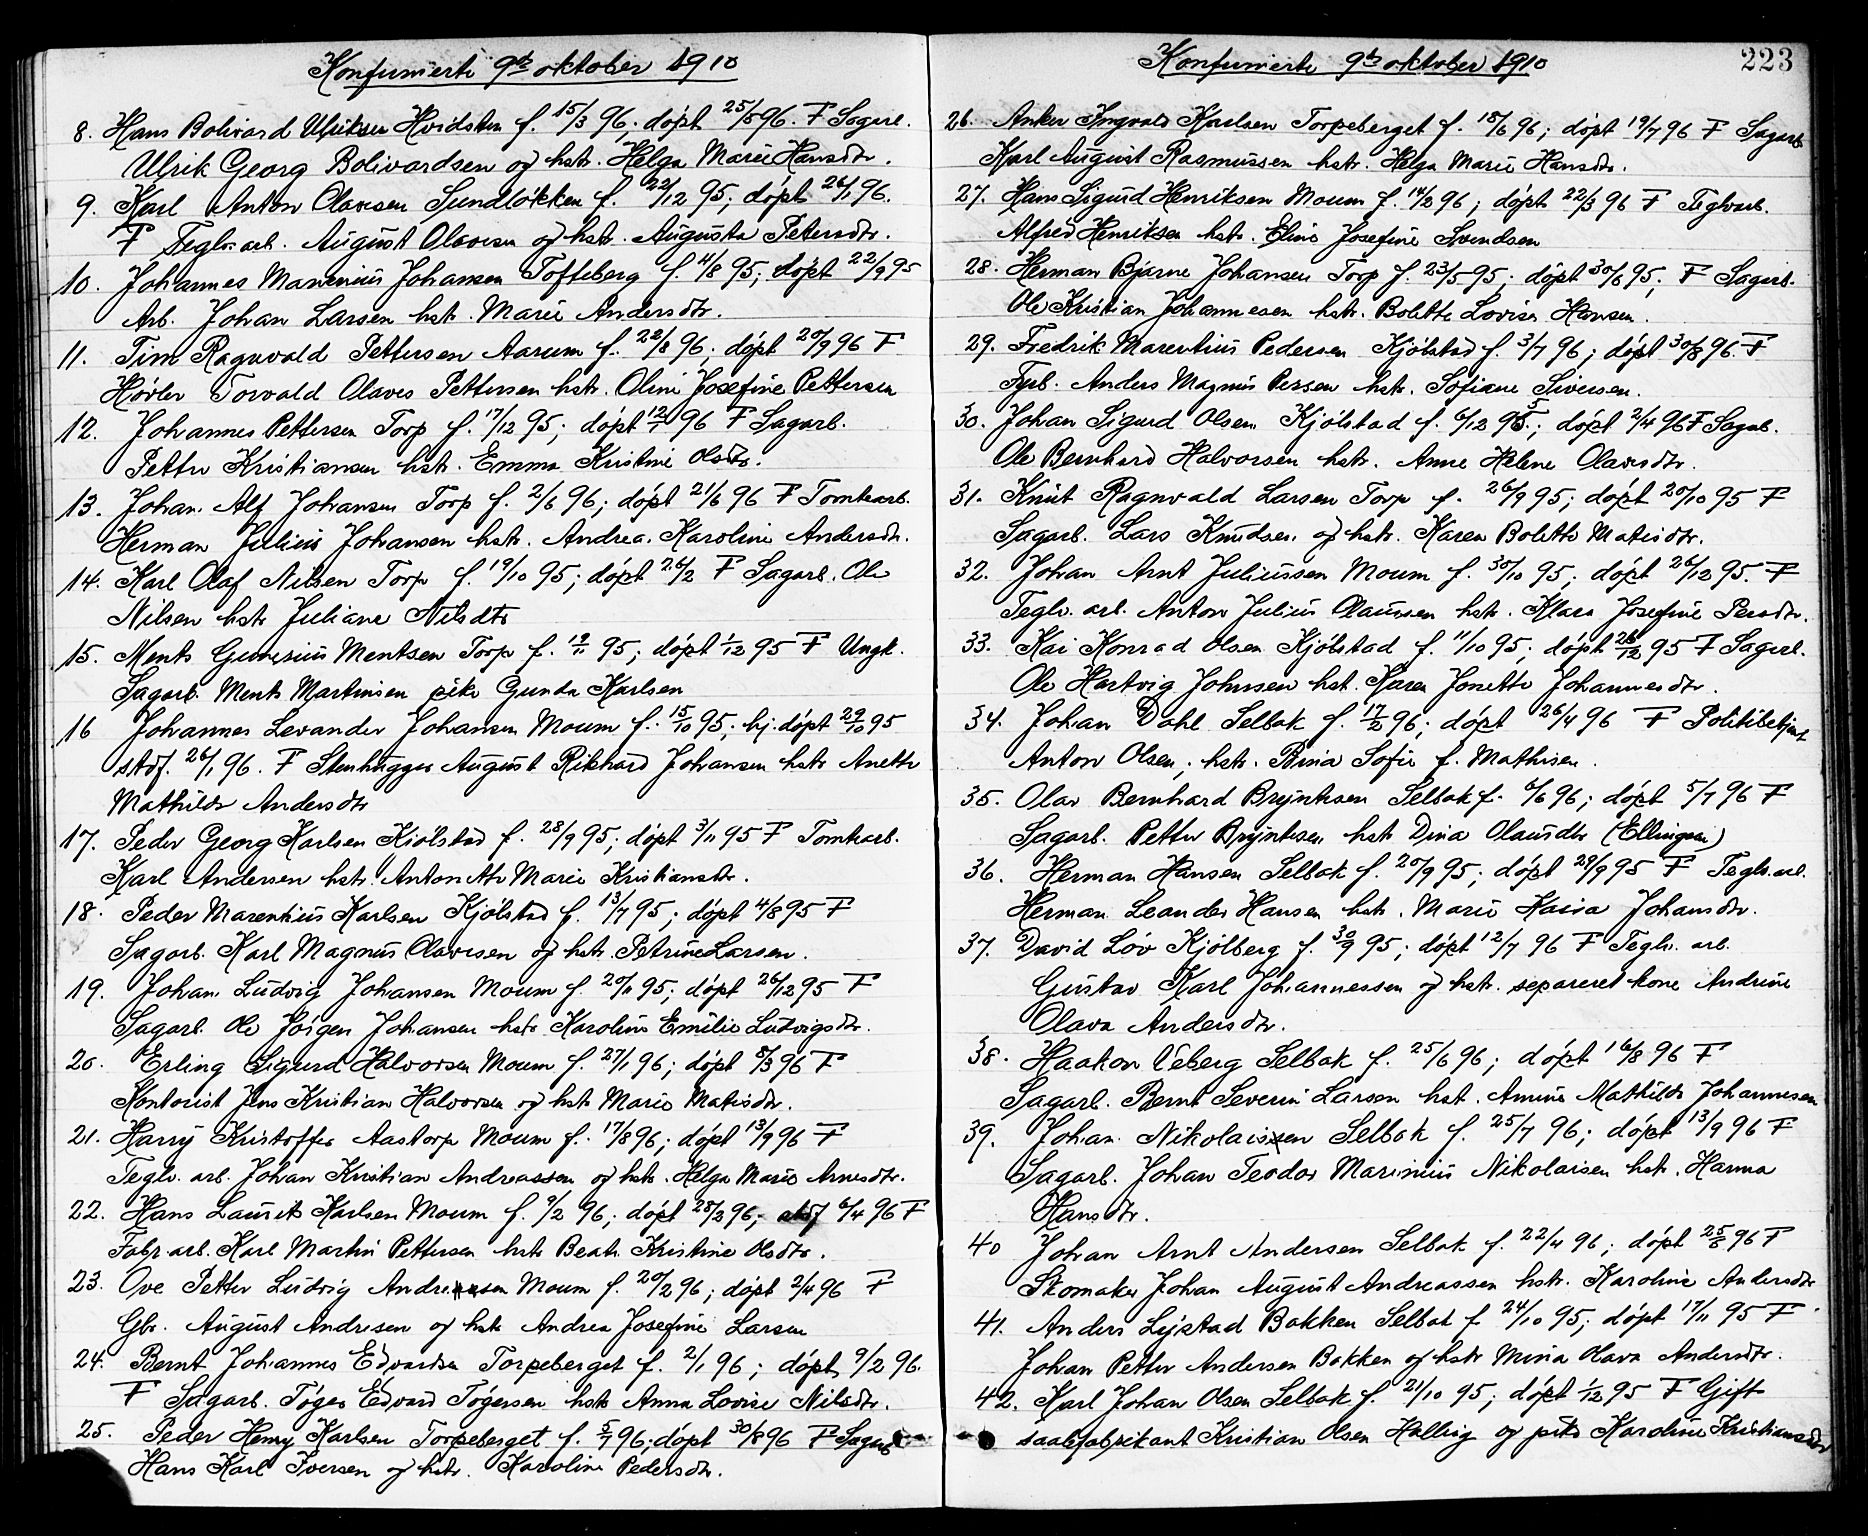 Konfirmerte 9de oktober 1910
8. Hans Bolivard Ulriksen Hvidsten f. 15/3 96; døpt 25/5 96. F Sagarb.
Ulrik Georg Bolivardsen og hstr. Helga Marie Hansdtr.
9. Karl Anton Olavesen Sundløkken f. 22/12 95; døpt 26/1 96.
F Teglv. arb. August Olavesen og hstr. Augusta Petersdtr.
10. Johannes Marenius Johansen Tofteberg f. 4/8 95; døpt 22/9 95
Arb. Johan Larsen hstr. Marie Andersdtr.
11. Tim Ragnvald Pettersen Aarum f. 22/8 96; døpt 20/9 96 F
Høvler Torvald Olaves Pettersen hstr. Oline Josefine Pettersen
12. Johannes Pettersen Torp f. 17/12 95; døpt 12/1 96 F Sagarb.
Petter Kristiansen hstr. Emma Kristine Olsdtr.
13. Johan Alf Johansen Torp f. 2/6 96; døpt 21/6 96 F Tomtearb.
Herman Julius Johansen hstr. Andrea Karoline Andersdtr.
14. Karl Olaf Nilsen Torp f. 19/10 95; døpt 26/2 F Sagarb. Ole
Nilsen hstr Juliane Nilsdtr
15. Ments Gunerius Mentsen Torp f. 19/11 95; døpt 1/12 95 F Ungk.
Sagarb. Ments Martinsen pike Gunda Karlsen
16 Johannes Levander Johansen Moum f. 15/10 95; hj. døpt 29/10 95
stadf. 26/1 96. F Stenhugger August Rikhard Johansen hstr Anette
Mathilde Andersdtr
17. Peder Georg Karlsen Kjølstad f. 28/9 95; døpt 3/11 95 F Tomtearb.
Karl Andersen hstr. Antonette Marie Kristiansdtr.
18. Peder Marentius Karlsen Kjølstad f. 13/7 95; døpt 4/8 95 F
Sagarb. Karl Magnus Olavesen og hstr. Petrine Larsen.
19. Johan Ludvig Johansen Moum f. 20/11 95; døpt 26/12 95 F
Sagarb. Ole Jørgen Johansen hstr Karoline Emilie Ludvigsdtr.
20. Erling Sigurd Halvorsen Moum f. 27/1 96; døpt 8/3 96 F
Kontorist Jens Kristian Halvorsen og hstr Marie Matisdtr.
21. Harry Kristoffer Aastorp Moum f. 17/8 96; døpt 13/9 96 F
Teglv. arb. Johan Kristian Andreassen og hstr. Helga Marie Arnesdtr.
22. Hans Laurits Karlsen Moum f. 9/2 96; døpt 28/2 96; stdf 6/4 96 F
Fabr. arb. Karl Martin Pettersen hstr Beate Kristine Olsdtr.
23. Ove Petter Ludvig Andresen Moum f. 20/2 96; døpt 2/4 96 F
Gbr. August Andresen og hstr Andrea Josefine Larsen
24. Bernt Johannes Edvardsen Torpeberget f. 2/1 96; døpt 9/2 96.
F Sagarb. Tøger Edvard Tøgersen hstr Anna Lovise Nilsdtr.
25. Peder Henry Karlsen Torpeberget f. 5/7 96; døpt 30/8 96 F Sagarb
Hans Karl Iversen og hstr. Karoline Pedersdtr.
Konfirmerte 9de oktober 1910
223
26. Anker Ingvald Karlsen Torpeberget f. 18/6 96; døpt 19/7 96 F Sagarb
Karl August Rasmussen hstr. Helga Marie Hansdtr.
27. Hans Sigurd Henriksen Moum f. 14/2 96; døpt 22/3 96 F Teglvarb.
Alfred Henriksen hstr. Eline Josefine Svendsen
28. Herman Bjarne Johansen Torp f. 23/5 95; døpt 30/6 95; F Sagarb.
Ole Kristian Johannesen hstr. Bolette Lovise Hansen.
29. Fredrik Marentius Pedersen Kjølstad f. 3/7 96; døpt 30/8 96. F
Fyrb. Anders Magnus Persen hstr. Sofiane Siversen.
30. Johan Sigurd Olsen Kjølstad f. 6/12 95; døpt 2/4 96 F Sagarb.
Ole Bernhard Halvorsen hstr. Anne Helene Olavesdtr.
31. Knut Ragnvald Larsen Torp f. 26/9 95; døpt 20/10 95 F
Sagarb. Lars Knudsen og hstr. Karen Bolette Matisdtr.
32. Johan Arnt Juliussen Moum f. 30/10 95; døpt 26/12 95. F
Teglv. arb. Anton Julius Olaussen hstr. Klara Josefine Persdtr.
33. Kai Konrad Olsen Kjølstad f. 11/10 95; døpt 26/12 95 F Sagarb.
Ole Hartvig Johnsen hst. Karen Jonette Johannesdtr.
34. Johan Dahl Selbak f. 17/2 96; døpt 26/4 96 F Politibetjent
Anton Olsen, hstr. Bina Sofie f. Mathisen.
35. Olav Bernhard Bryntesen Selbak f. 6/6 96; døpt 5/7 96 F
Sagarb. Petter Bryntesen hstr Dina Olausdtr (Ellingsen)
36. Herman Hansen Selbak f. 20/9 95; døpt 29/9 95 F Teglv. arb.
Herman Leander Hansen hstr. Marie Kasia Johansdtr.
37. David Løv Kjølberg f. 30/9 95; døpt 12/7 96 F Teglv. arb.
Gustav Karl Johannessen og hstr. separeret kone Andrine
Olava Andersdtr.
38. Haakon Veberg Selbak f. 25/6 96; døpt 16/8 96 F
Sagarb. Bernt Severin Larsen hst. Amine Mathilde Johannesen
39. Johan Nikolaisen Selbak f. 25/7 96; døpt 13/9 96 F
Sagarb. Johan Teodor Marinius Nikolaisen hstr. Hanna
Hansdtr.
40 Johan Arnt Andersen Selbak f. 22/4 96; døpt 25/5 96 F
Skomaker Johan August Andreassen hstr. Karoline Andersdtr
41. Anders Lejstad Bakken Selbak f 24/10 95; døpt 17/11 95 F
Johan Petter Andersen Bakken og hstr Mina Olava Andersdtr.
42. Karl Johan Olsen Selbak f. 21/10 95; døpt 1/12 95 F Gift
saalefabrikant Kristian Olsen Halling og pike Karoline Kristiansdtr